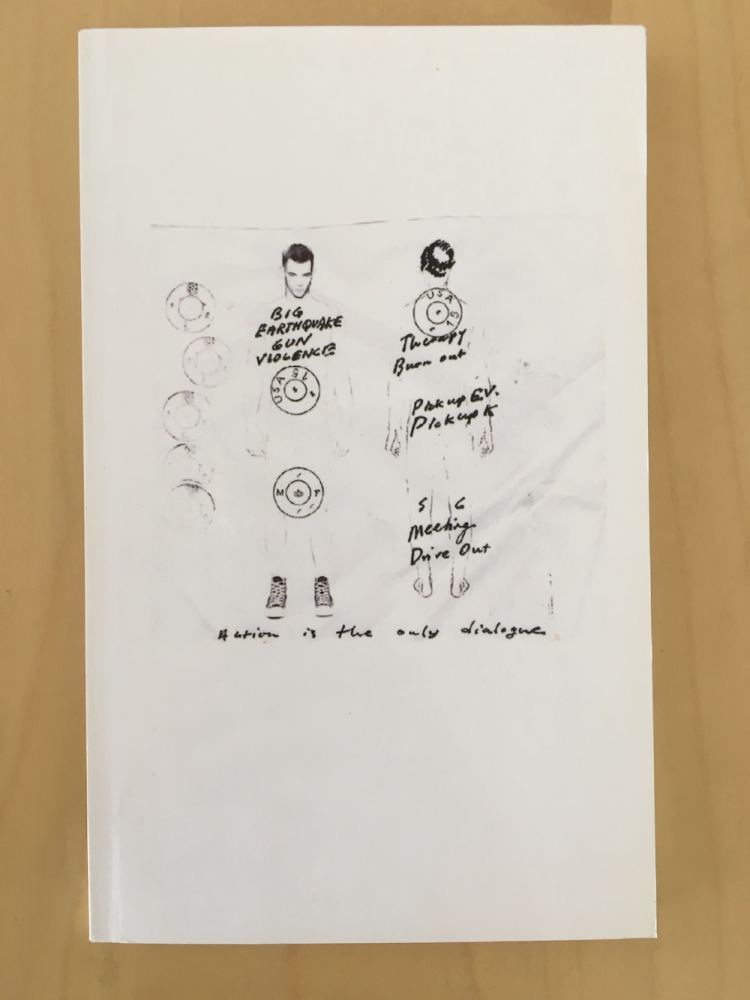 BIG
EARTHQUAKE
GUN
VIOLENCE
USA 15
M F
USA 15
Therapy
Burn out
Pick up EV.
Pick up K
S G
Meeting
Drive Out
Action is the only dialogue